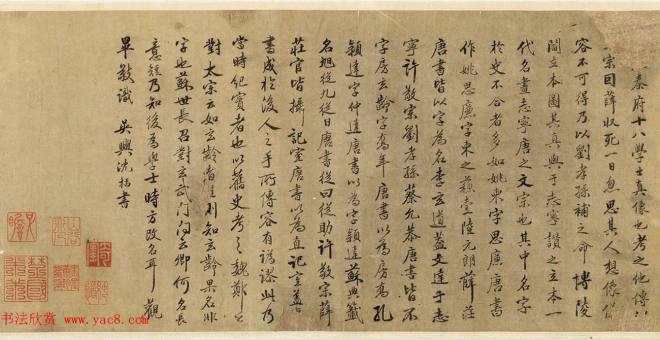 秦府十八學士真像也考之他傳
宗曰薛收死一日忽思其人想像
容不可得乃以劉孝孫補之命博陵
閻立本圖其真與于志寧讚之立本一
代名畫志寧唐之文宗也其中名字
於史不合者多如姚柬字思廉唐書
作姚思廉字柬之蘇壹陸元朗薛莊
唐書皆以字為名李玄道蓋文達于志
寧許敬宗劉孝孫蔡允恭唐書皆不
字房玄齡字喬年唐書以為房喬孔
穎達字仲達唐書以為字穎達蘇典籤
名旭從九從日唐書從曰從助許敬宗薛
莊官皆攝記室唐書以為直記室蓋
書成於後人之手所傳容有訛謬此乃
當時紀實者也以舊史考之魏鄭公
對太宗云如玄齡者則知玄齡果名非
字也蘇世長召對玄武門問云卿何名長
意短乃知後為學士時方改名耳 觀
畢敬識 吳興沈括書
书法欣赏 www.yac8.com